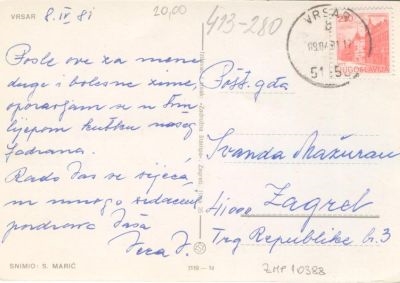 VRSAR 8. IV 81
20,00
413-280
VRSAR
8
09.04.81.12
51450
JUGOSLAVIJA
Posle ove za mene
duge i bolesne zime,
oporavljam se u ovom
lijepom kutku našeg
Jadrana.
Rado Vas se sjeća
i mnogo srdačnih
pozdrava Vaša
Vera J.
Pošt. gđa
Ivanka Mažuran
41000 Zagreb
Trg Republike br. 3
SNIMIO: S. MARIĆ
ZMP 10388